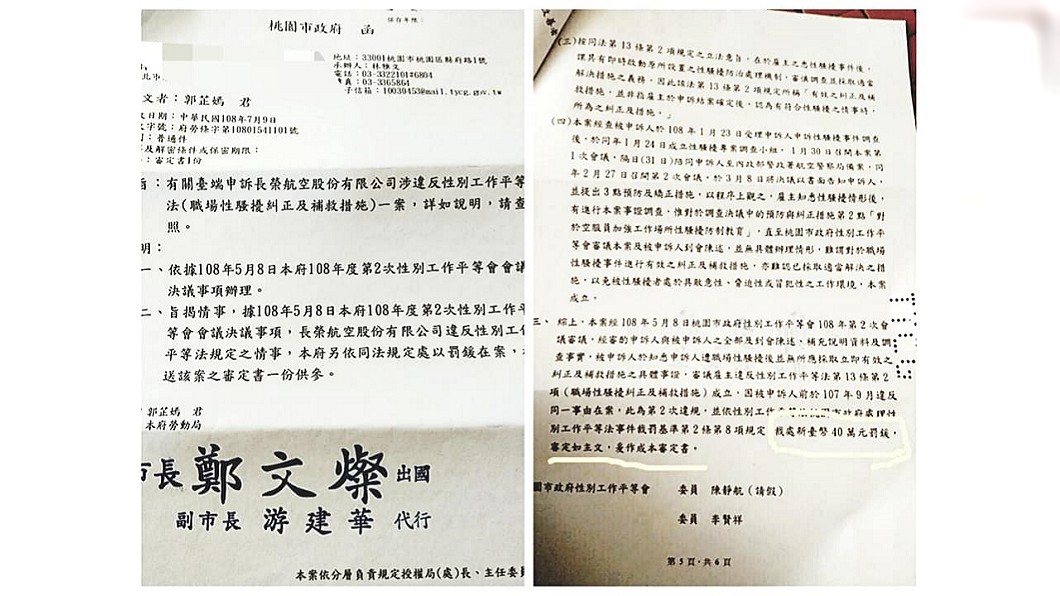 保存年限：
桃園市政府 函
地址：33001桃園市桃園區縣府路1號
承辦人：林雅文
電話：03-3322101#6804
真：03-3365864
子信箱：10030453@mail.tycg.gov.tw
北市
文者：郭芷嫣 君
日期：中華民國108年7月9日
字號：府勞條字第10801541101號
：普通件
及解密條件或保密期限：
：審定書1份
旨：有關臺端申訴長榮航空股份有限公司涉違反性別工作平等
法(職場性騷擾糾正及補救措施)一案，詳如說明，請查
照。
明：
一、依據108年5月8日本府108年度第2次性別工作平等會會議
決議事項辦理。
二、旨揭情事，據108年5月8日本府108年度第2次性別工作平
等會會議決議事項，長榮航空股份有限公司違反性別工作
平等法規定之情事，本府另依同法規定處以罰鍰在案，
送該案之審定書一份供參。
郭芷嫣 君
本府勞動局
市長 鄭文燦 出國
副市長 游建華 代行
本案依分層負責規定授權局(處)長、主任委員
(三)按同法第13條第2項規定之立法意旨，在於雇主之悉性騷擾事件後，
課其有即時啟動原所設置之性騷擾防治處理機制，審慎調查並採取適當
解決措施之義務。因此該法第13條第2項規定所稱「有效之糾正及補
救措施，並非指雇主於申訴結案確定後，認為有符合性騷擾之情事時，
所為之糾正及措施。」
(四)本案經查被申訴人於108年1月23日受理申訴人申訴性騷擾事件調查
後，於同年1月24日成立性騷擾專案調查小組，1月30日召開本案第
1次會議，隔日(31日)陪同申訴人至內政部警政署航空警察局備案，同
年2月27日召開第2次會議，於3月8日將決議以書面告知申訴人，
並提出3點預防及矯正措施，以程序上觀之，雇主知悉性騷擾情形後，
有進行本案事證調查，惟對於調查決議中的預防與糾正措施第2點「對
於空服員加強工作場所性騷擾防制教育」，直至桃園市政府性別工作平
等會審議本案及被申訴人到會陳述，並無具體辦理情形，難謂對於職場
性騷擾事件進行有效之糾正及補救措施，亦難認已採取適當解決之措
施，以免被性騷擾者處於具敵意性、脅迫性或冒犯性之工作環境，本案
成立。
三、 綜上，本案經108年5月8日桃園市政府性別工作平等會108年第2次會
議審議，經審酌申訴人與被申訴人之全部及到會陳述、補充說明資料及調
查事實，被申訴人於知悉申訴人遭職場性騷擾後並無所應採取立即有效之
糾正及補救措施之具體事證，審議雇主違反性別工作平等法第13條第2
項(職場性騷擾糾正及補救措施)成立，因被申訴人前於107年9月違反
同一事由在案，此為第2次違規，並依性別工作平等法桃園市政府處理性
別工作平等法事件裁罰基準第2條第8項規定，裁處新臺幣40萬元罰鍰，
審定如主文，爰作成本審定書。
園市政府性別工作平等會 委員 陳靜航(請假)
委員 李賢祥
第5頁，共6頁